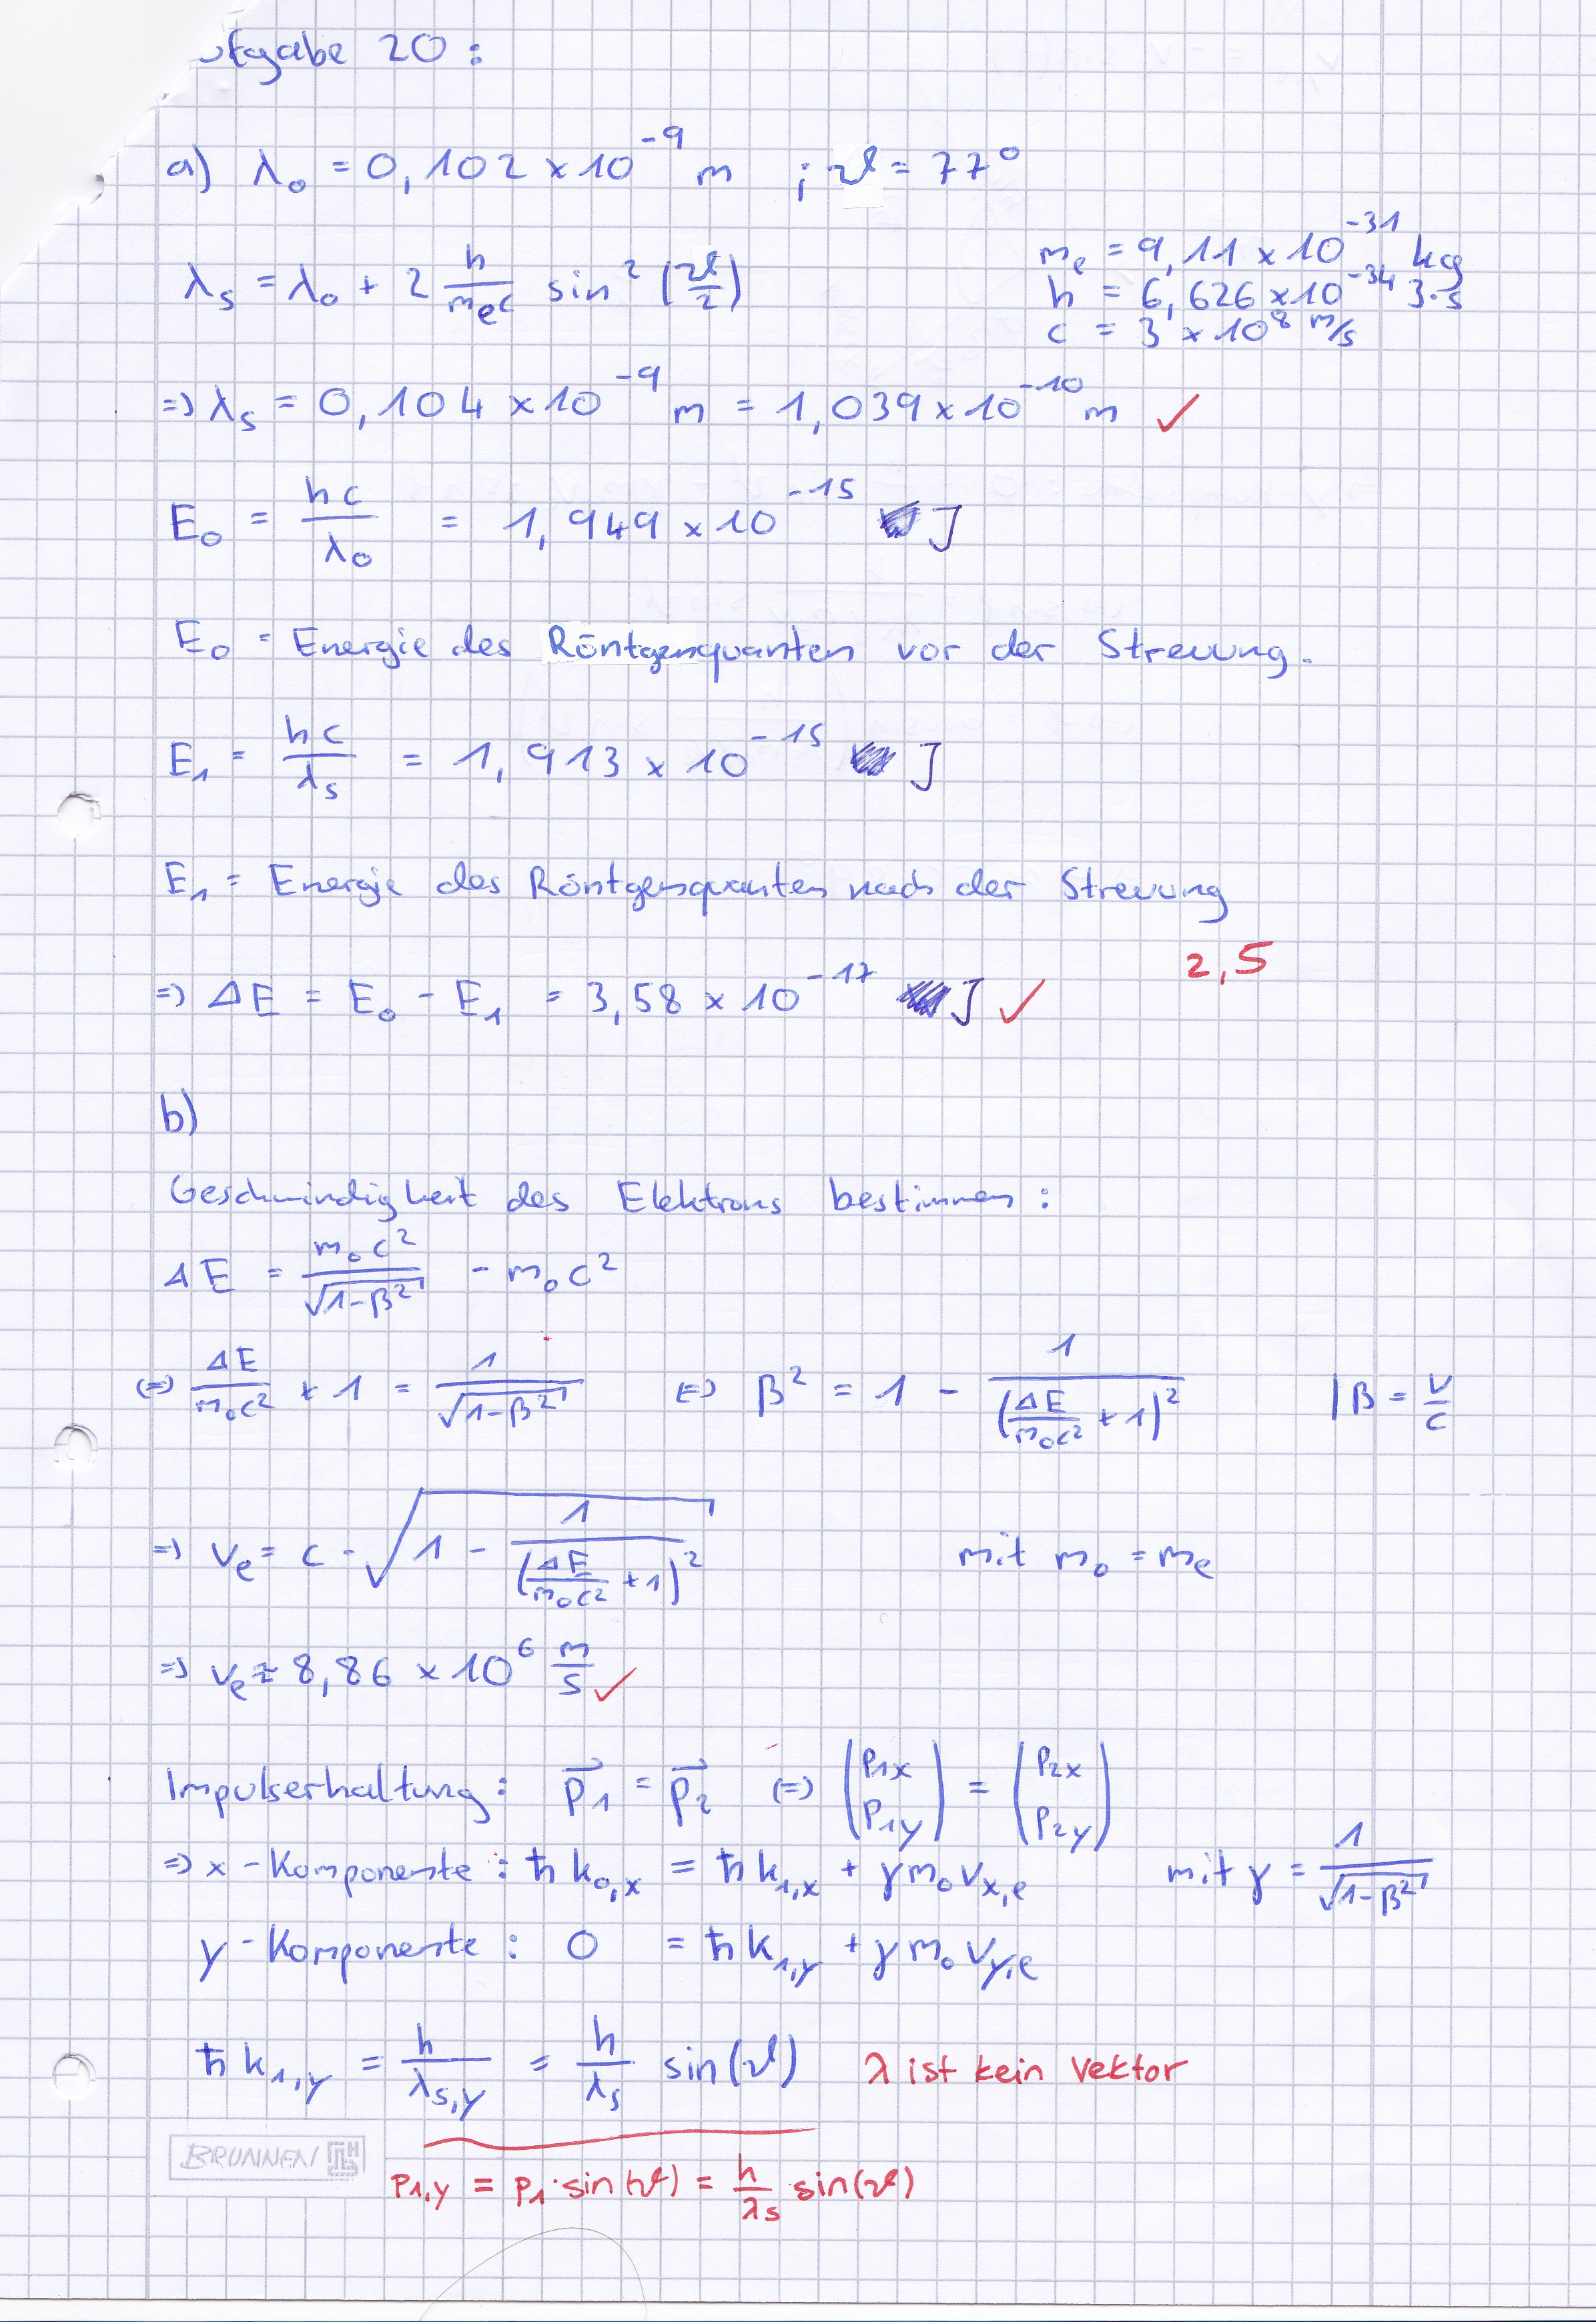 ufgabe 20:
a) λ₀ = 0,102 × 10⁻⁹ m ; ϑ = 77°
mₑ = 9,11 × 10⁻³¹ kg
h = 6,626 × 10⁻³⁴ J·s
c = 3 × 10⁸ m/s
λₛ = λ₀ + 2 h/(mₑc) sin² (ϑ/2)
=> λₛ = 0,104 × 10⁻⁹ m = 1,039 × 10⁻¹⁰ m ✓
E₀ = hc/λ₀ = 1,949 × 10⁻¹⁵ J
E₀ = Energie des Röntgenquanten vor der Streuung.
E₁ = hc/λₛ = 1,913 × 10⁻¹⁵ J
E₁ = Energie des Röntgenquanten nach der Streuung
2,5
=> ΔE = E₀ - E₁ = 3,58 × 10⁻¹⁷ J ✓
b)
Geschwindigkeit des Elektrons bestimmen:
ΔE = m₀c²/√(1-β²) - m₀c²
(=) ΔE/(m₀c²) + 1 = 1/√(1-β²) (=) β² = 1 - 1/(ΔE/(m₀c²) + 1)² | β = v/c
=> vₑ = c · √(1 - 1/(ΔE/(m₀c²) + 1)²) mit m₀ = mₑ
=> vₑ ≈ 8,86 × 10⁶ m/s ✓
Impulserhaltung: p⃗₁ = p⃗₂ (=) (p₁ₓ p₁y) = (p₂ₓ p₂y)
=> x-Komponente: ħ k₀,ₓ = ħ k₁,ₓ + γ m₀ vₓ,ₑ mit γ = 1/√(1-β²)
y-Komponente: 0 = ħ k₁,y + γ m₀ v_y,e
ħ k₁,y = h/λ_s,y = h/λₛ sin(ϑ) λ ist kein Vektor
BRUNNEN
p₁,y = p₁ · sin(ϑ) = h/λₛ · sin(ϑ)